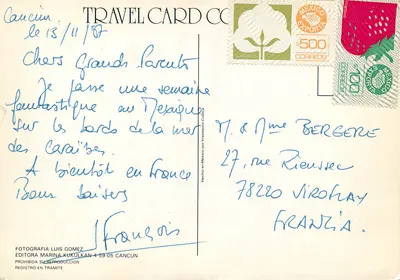 TRAVEL CARD CO
Cancun
le 13/11/87
Chers Grands Parents
Je passe une semaine
fantastique au Mexique
sur les bords de la mer
des caraïbes.
A bientôt en France
Bons baisers
François
FOTOGRAFIA LUIS GOMEZ
EDITORA MARINA KUKULKAN 4 59-05 CANCUN
PROHIBIDA SU REPRODUCCION
REGISTRO EN TRAMITE
MEXICO
EXPORTA
500
CORREOS
MEXICO
EXPORTA
100
M. & Mme BERGERE
27, rue Rieussec
78220 VIROFLAY
FRANZIA.